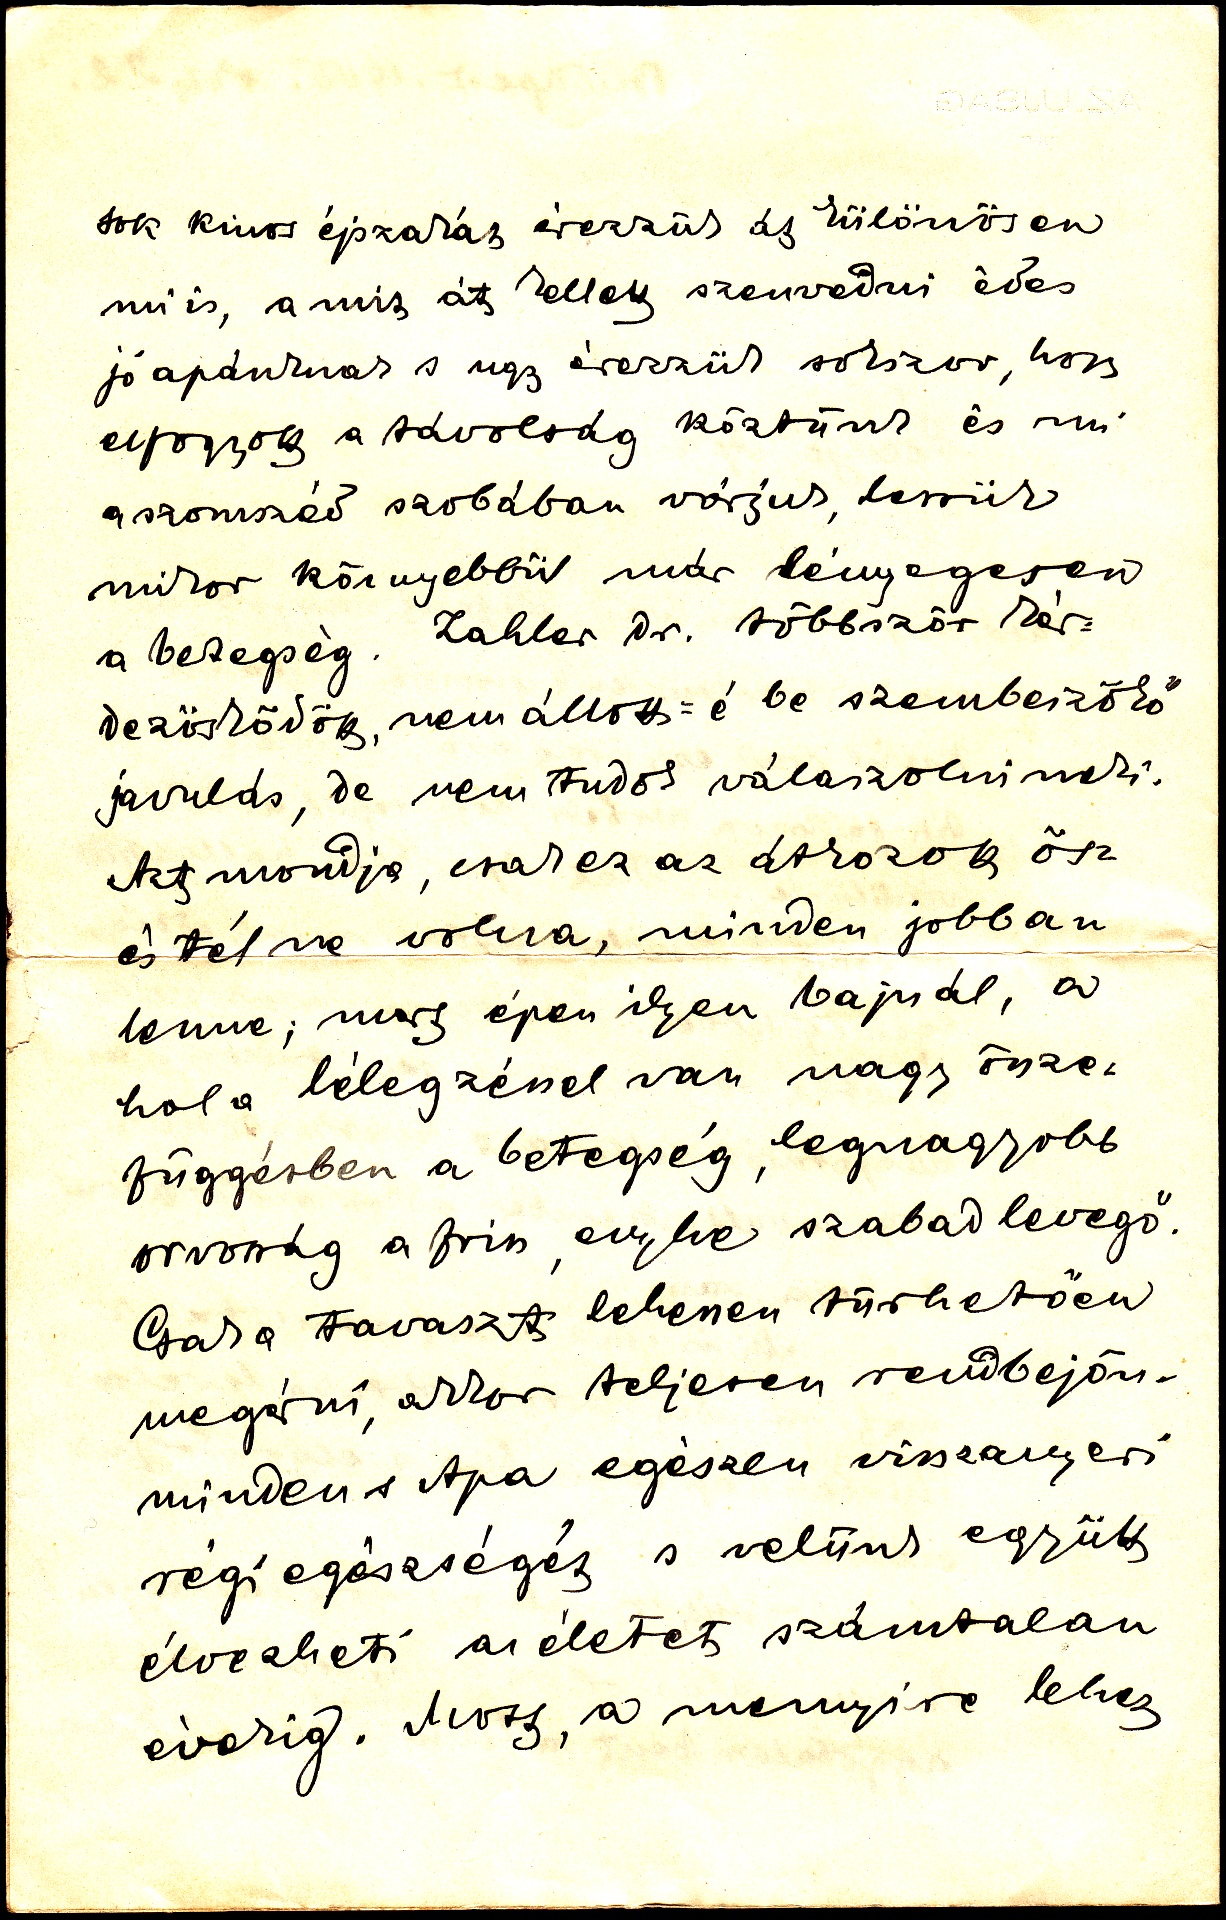 sok kinos éjszakát érezzük át különösen
mi is, a mit át kellett szenvedni édes
jó apánknak s ugy érezzük sokszor, hogy
elfogyott a távolság köztünk és mi
a szomszéd szobában várjuk, lessük
mikor könnyebbül már lényegesen
a betegség. Zahler dr. többször kér=
dezösködött, nem állott=é be szembeszökő
javulás, de nem tudok válaszolni neki.
Azt mondja, csak ez az átkozott ősz
és tél ne volna, minden jobban
lenne; mert épen ilyen bajnál, a
hol a lélegzéssel van nagy össze-
függésben a betegség, legnagyobb
orvosság a friss, enyhe szabad levegő.
Csak a tavaszt lehessen türhetően
megérni, akkor teljesen rendbejön
minden s Apa egészen visszanyeri
régi egészségét s velünk együtt
élvezheti az életet számtalan
évekig. Most, a mennyire lehet